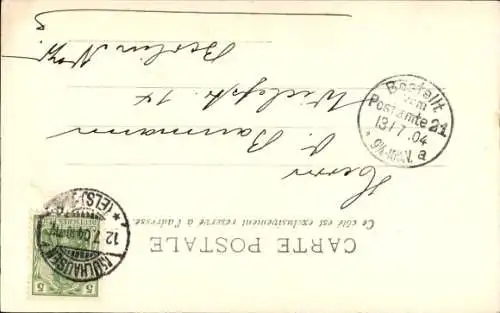 CARTE POSTALE
Ce côté est exclusivement réservé à l'adresse.
Herrn
O. Baumann
14
Berlin
Bestellt
vom
Postamte 21
13/7.04
a
MÜLHAUSEN
12.7.04
* (ELS)
5 5